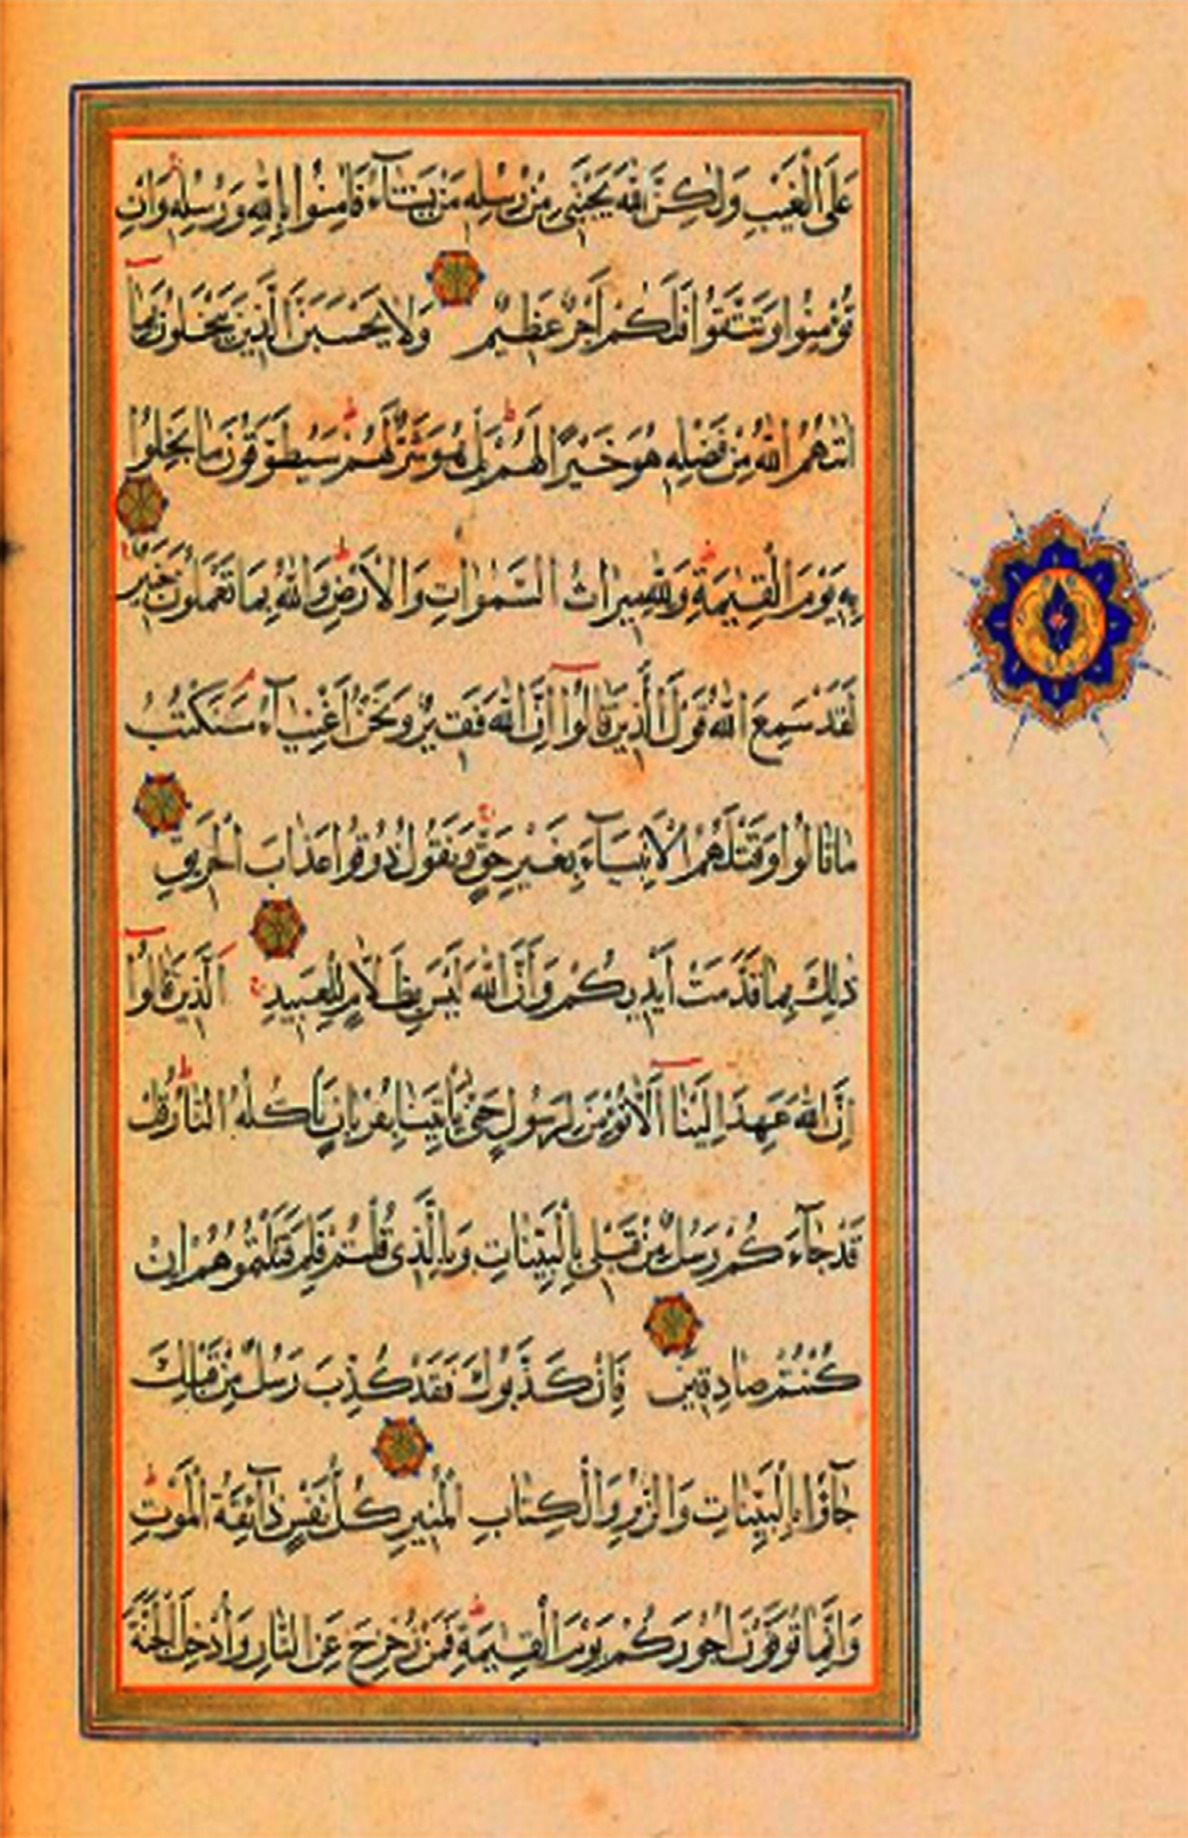 عَلَى الْغَيْبِ وَلٰكِنَّ اللّٰهَ يَجْتَبِى مِنْ رُسُلِهِ مَنْ يَشَآءُ فَاٰمِنُوا بِاللّٰهِ وَرُسُلِهِ وَاِنْ
تُؤْمِنُوا وَتَتَّقُوا فَلَكُمْ اَجْرٌ عَظِيْمٌ وَلَا يَحْسَبَنَّ الَّذِيْنَ يَبْخَلُوْنَ بِمَآ
اٰتٰهُمُ اللّٰهُ مِنْ فَضْلِهِ هُوَ خَيْرًا لَهُمْ بَلْ هُوَ شَرٌّ لَهُمْ سَيُطَوَّقُوْنَ مَا بَخِلُوْا
بِهِ يَوْمَ الْقِيٰمَةِ وَلِلّٰهِ مِيْرَاثُ السَّمٰوَاتِ وَالْاَرْضِ وَاللّٰهُ بِمَا تَعْمَلُوْنَ خَبِيْرٌ
لَقَدْ سَمِعَ اللّٰهُ قَوْلَ الَّذِيْنَ قَالُوْٓا اِنَّ اللّٰهَ فَقِيْرٌ وَنَحْنُ اَغْنِيَآءُ سَنَكْتُبُ
مَا قَالُوْا وَقَتْلَهُمُ الْاَنْبِيَآءَ بِغَيْرِ حَقٍّ وَنَقُوْلُ ذُوْقُوْا عَذَابَ الْحَرِيْقِ
ذٰلِكَ بِمَا قَدَّمَتْ اَيْدِيْكُمْ وَاَنَّ اللّٰهَ لَيْسَ بِظَلَّامٍ لِلْعَبِيْدِ اَلَّذِيْنَ قَالُوْٓا
اِنَّ اللّٰهَ عَهِدَ اِلَيْنَآ اَلَّا نُؤْمِنَ لِرَسُوْلٍ حَتّٰى يَاْتِيَنَا بِقُرْبَانٍ تَاْكُلُهُ النَّارُ قُلْ
قَدْ جَآءَكُمْ رُسُلٌ مِنْ قَبْلِى بِالْبَيِّنَاتِ وَبِالَّذِى قُلْتُمْ فَلِمَ قَتَلْتُمُوْهُمْ اِنْ
كُنْتُمْ صَادِقِيْنَ فَاِنْ كَذَّبُوْكَ فَقَدْ كُذِّبَ رُسُلٌ مِنْ قَبْلِكَ
جَآؤُا بِالْبَيِّنَاتِ وَالزُّبُرِ وَالْكِتَابِ الْمُنِيْرِ كُلُّ نَفْسٍ ذَآئِقَةُ الْمَوْتِ
وَاِنَّمَا تُوَفَّوْنَ اُجُوْرَكُمْ يَوْمَ الْقِيٰمَةِ فَمَنْ زُحْزِحَ عَنِ النَّارِ وَاُدْخِلَ الْجَنَّةَ